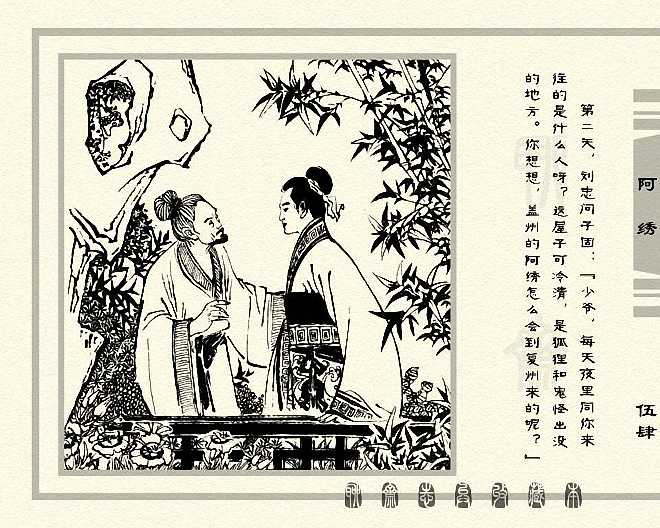 第二天，刘忠问子固：「少爷，每天夜里同你来
往的是什么人呀？这屋子可冷清，是狐狸和鬼怪出没
的地方。你想想，盖州的阿绣怎么会到复州来的呢？」
阿绣
伍肆